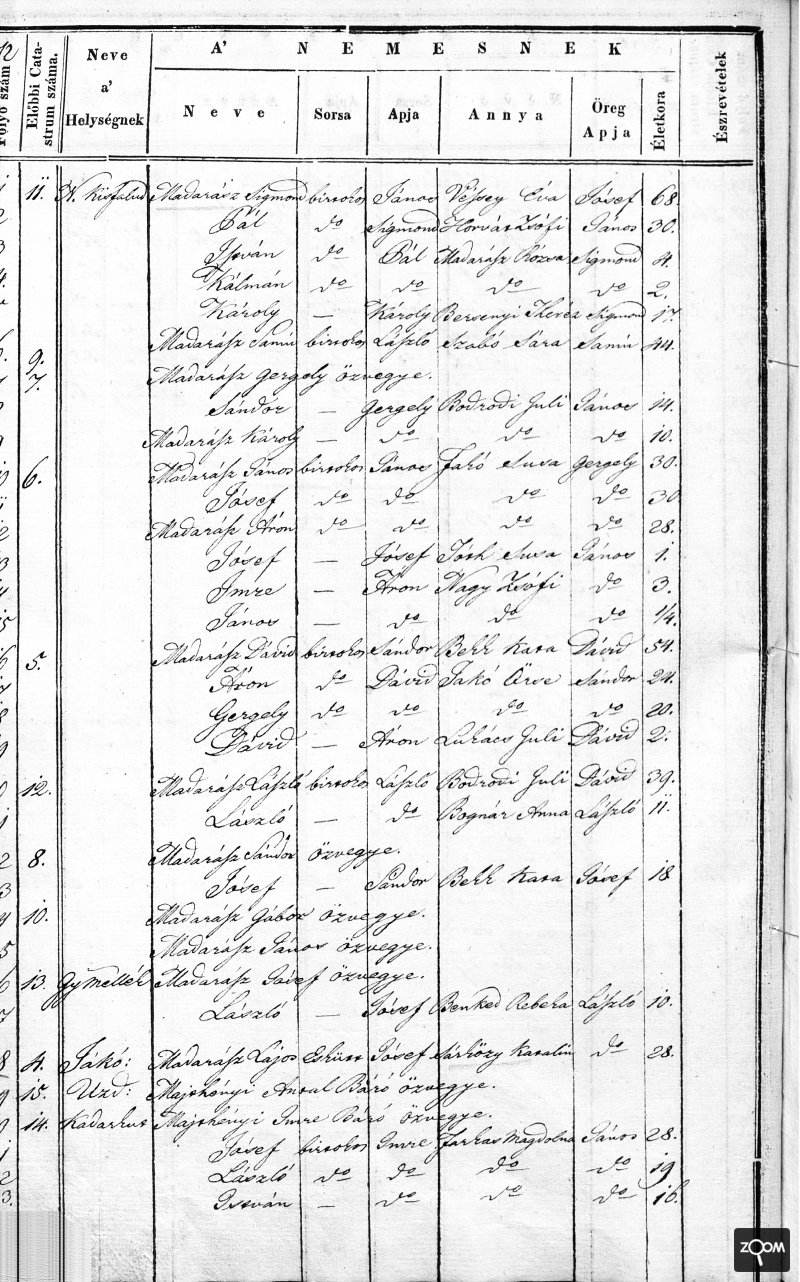 Folyó szám
Előbbi Catastrum száma.
Neve a' Helységnek
A' NEMESNEK
Neve Sorsa Apja Annya Öreg Apja Életkora
Észrevételek
11. N. Kisfalud Madarász Sigmond birtokos János Vessey Éva Jósef 68.
Pál do Sigmond Horvát Zsófi János 30.
István do Pál Madarász Rózsa Sigmond 4.
Kálmán do do do do 2.
Károly — Károly Bersenyi Theréz Sigmond 17.
9. Madarász Samu birtokos László Szabó Sára Samu 44.
7. Madarász Gergely özvegye.
Sándor — Gergely Bodrodi Juli János 14.
Madarász Károly — do do do 10.
6. Madarász János birtokos János Jakó Susa Gergely 30.
Jósef do do do do 30
Madarász Áron do do do do 28.
Jósef — Jósef Tóth Susa János 1.
Imre — Áron Nagy Zsófi do 3.
János — do do do 1/4.
5. Madarász Dávid birtokos Sándor Bekk Kata Dávid 54.
Áron do Dávid Jakó Örse Sándor 24.
Gergely do do do do 20.
Dávid — Áron Lukács Juli Dávid 2.
12. Madarász László birtokos László Bodrodi Juli Dávid 39.
László — do Bognár Anna László 11.
8. Madarász Sándor özvegye.
Jósef — Sándor Bekk Kata Jósef 18
10. Madarász Gábor özvegye.
Madarász János özvegye.
13. Gymellék Madarász Jósef özvegye.
László — Jósef Benked Rebeka László 10.
4. Jákó: Madarász Lajos Eskütt Jósef Sárközy Katalin do 28.
15. Uzd: Majthényi Antal Báró özvegye.
14. Kadarkut Majthényi Imre Báró özvegye.
Jósef birtokos Imre Farkas Magdolna János 28.
László do do do do 19
István — do do do 16.
ZOOM